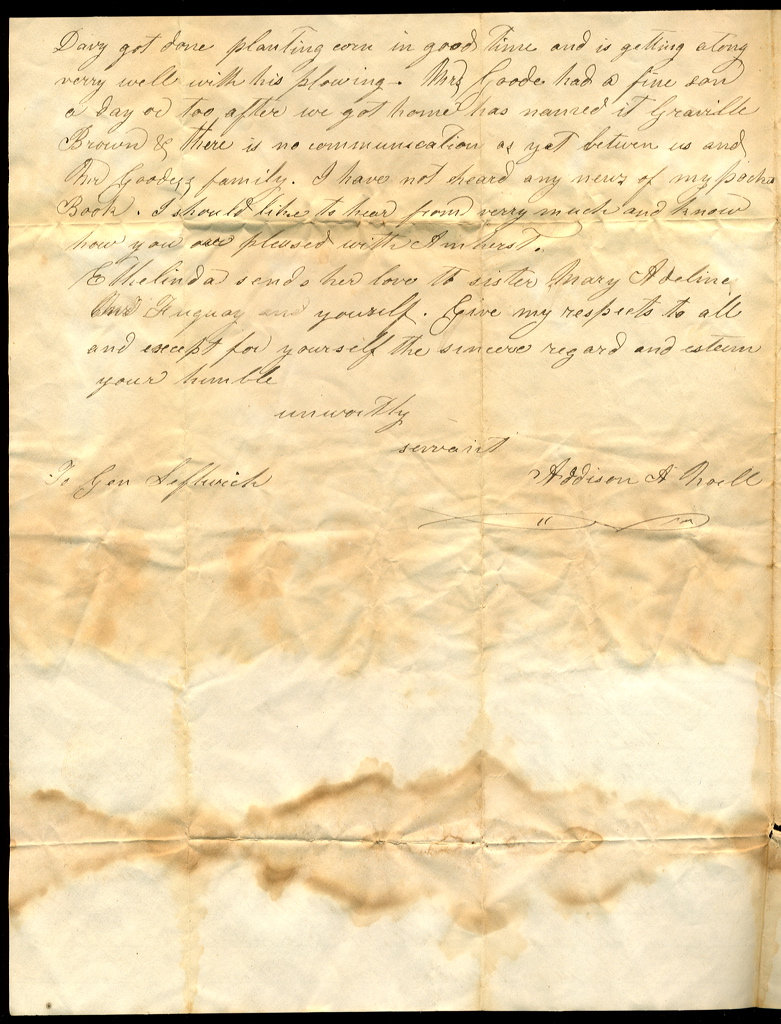 Davy got done planting corn in good time and is getting along
verry well with his plowing. Mrs Goode had a fine son
a day or too after we got home has named it Graville
Brown & there is no communication as yet between us and
Mr Goodes family. I have not heard any news of my
Book. I should like to hear from verry much and know
how you are pleased with Amherst.
Ethelinda sends her love to sister Mary Adeline
and Fuquay and yourself. Give my respects to all
and except for yourself the sincere regard and esteem
your humble
unworthy
servant
To Gen Leftwich
Addison A Noell